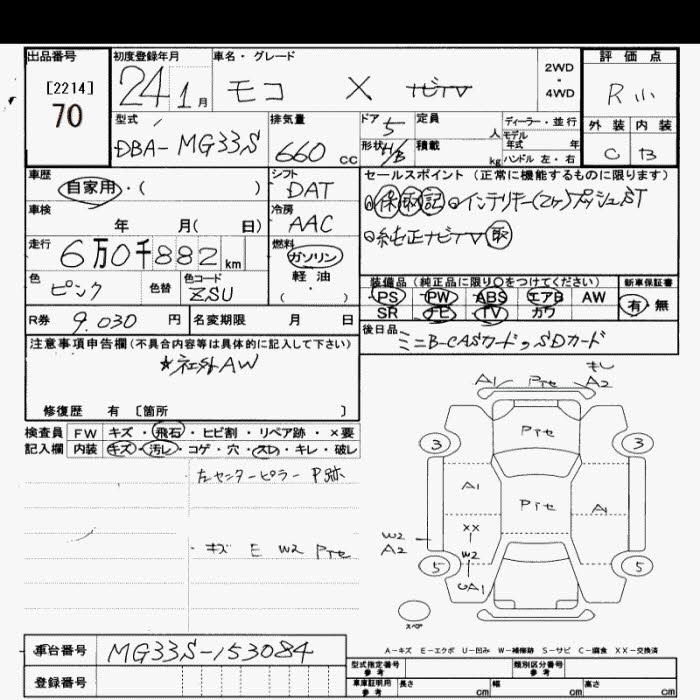 出品番号 初度登録年月 車名・グレード 2WD・4WD 評価点
[2214] 24 1月 モコ X ナビTV R小
70 型式 排気量 ドア 5 定員 人 ディーラー・並行 外装 内装
DBA-MG33S 660cc 形状 H/B 積載 kg モデル年式 年 ハンドル 左・右 C B
車歴 シフト セールスポイント (正常に機能するものに限ります)
自家用・( ) DAT 保 取 記 インテリキー(2ケ)プッシュST
車検 冷房 純正ナビTV 取
年 月( 日) AAC
走行 燃料
6万0千882km ガソリン 装備品 (純正品に限り○をつけてください) 新車保証書
色 色替 色コード 軽・油 PS PW ABS エアB AW 有・無
ピンク ZSU ・( ) SR ナビ TV カワ
R券 9.030円 名変期限 月 日 後日品
注意事項申告欄(不具合内容等は具体的に記入して下さい) ミニB-CASカード, SDカード
☆社外AW
修復歴 有 〔箇所 〕
検査員 FW キズ・飛石・ヒビ割・リペア跡・×要
記入欄 内装 キズ・汚レ・コゲ・穴・スレ・キレ・破レ
左センターピラー P跡
・キズ E W2 Pтe
A1 Pтe A2
Pтe
3 3
A1 Pтe A1
XX
W2 A2 W2
5 UA1 5
スペア
A-キズ E-エクボ U-凹み W-補修跡 S-サビ C-腐食 XX-交換済
車台番号 MG33S-153084 型式指定番号 参考 類別区分番号 参考
登録番号 車庫証明用 参考 長さ cm 幅 cm 高さ cm